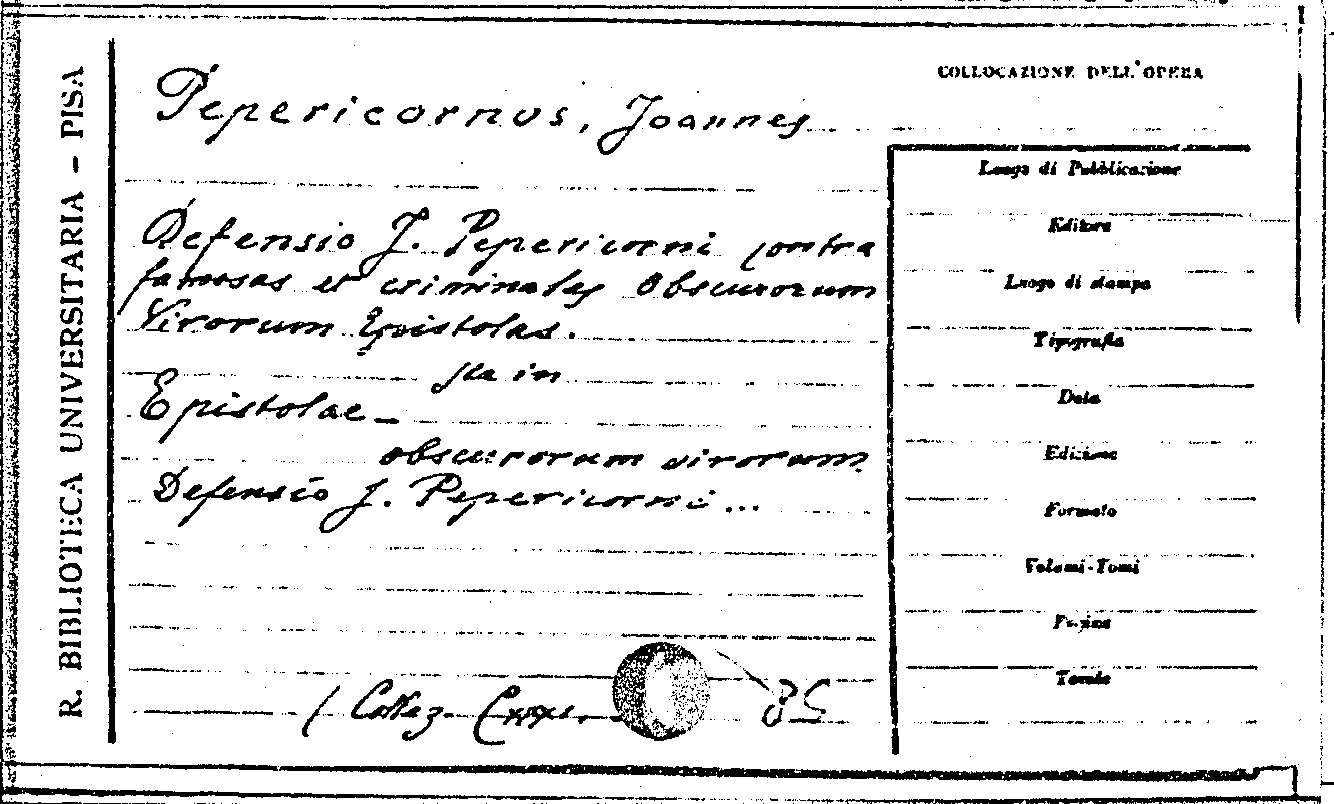 R. BIBLIOTECA UNIVERSITARIA - PISA
Pepericornus, Joannes
Defensio J. Pepericorni contra
famosas et criminales Obscurorum
Virorum Epistolas.
sta in
Epistolae -
obscurorum virorum
Defensio J. Pepericorni ...
COLLOCAZIONE DELL'OPERA
Luogo di Pubblicazione
Editore
Luogo di stampa
Tipografia
Data
Edizione
Formato
Volumi-Tomi
Pagine
Tavole